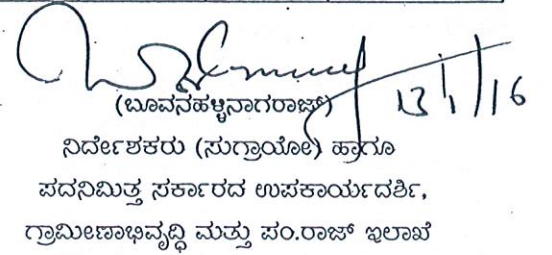 13/1/16
(ಬೂವನಹಳ್ಳಿನಾಗರಾಜ್)
ನಿರ್ದೇಶಕರು (ಸುಗ್ರಾಯೋ) ಹಾಗೂ
ಪದನಿಮಿತ್ತ ಸರ್ಕಾರದ ಉಪಕಾರ್ಯದರ್ಶಿ,
ಗ್ರಾಮೀಣಾಭಿವೃದ್ಧಿ ಮತ್ತು ಪಂ.ರಾಜ್ ಇಲಾಖೆ